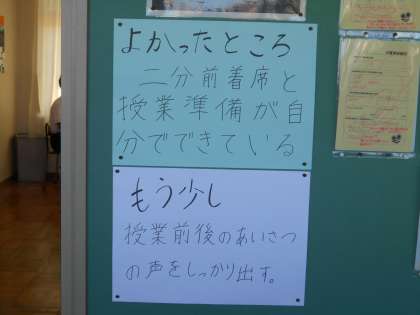 よかったところ
二分前着席と
授業準備が自
分でできている
もう少し
授業前後のあいさつ
の声をしっかり出す。